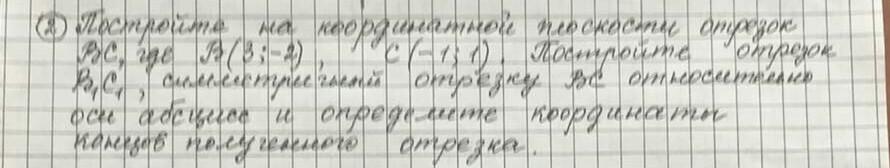 ② Постройте на координатной плоскости отрезок
BC, где B(3;-2), C(-1;1). Постройте отрезок
B₁C₁, симметричный отрезку BC относительно
оси абсцисс и определите координаты
концов полученного отрезка.